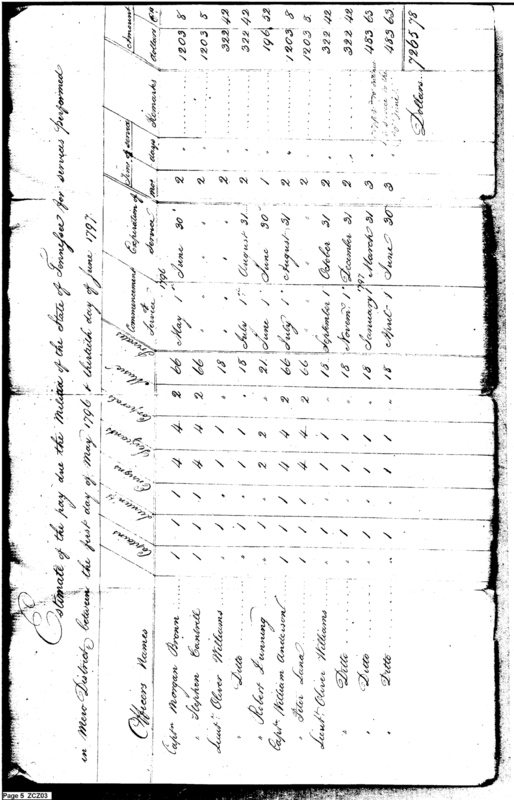 Estimate of the pay due the Militia of the State of Tennessee for services performed
in Mero District, between the first day of May 1796 & thirtieth day of June 1797.
Officers Names Captains Ensigns Sergeants Corporals Commencement of Service Expiration of Service Time of service mos days Remarks Amount dollars Cts
1796
Captn Morgan Brown 1 1 1 4 4 2 66 May 1st June 30th 2 " 1203 8
" Stephen Cantrell 1 1 1 4 4 2 66 " " 2 " 1203 5
Lieutt Oliver Williams " 1 " 1 1 " 18 " " 2 " 322 42
" Ditto " 1 " 1 1 " 18 July 1st August 31 2 " 322 42
" Robert " 1 " 2 2 " 21 June 1st June 30 1 " 196 52
Captn William Anderson 1 1 1 4 4 2 66 July 1st August 31 2 " 1203 8
" Peter 1 1 1 4 4 2 66 " " 2 " 1203 5
Lieutt Oliver Williams " 1 " 1 1 " 18 September 1 October 31 2 " 322 42
" Ditto " 1 " 1 1 " 18 Novemr 1st December 31 2 " 322 42
1797
" Ditto " 1 " 1 1 " 18 January 1st March 31 3 " 483 63
" Ditto " 1 " 1 1 " 18 April 1 June 30 3 " 483 63
Dollars 7265 78
Page 5 ZCZ03